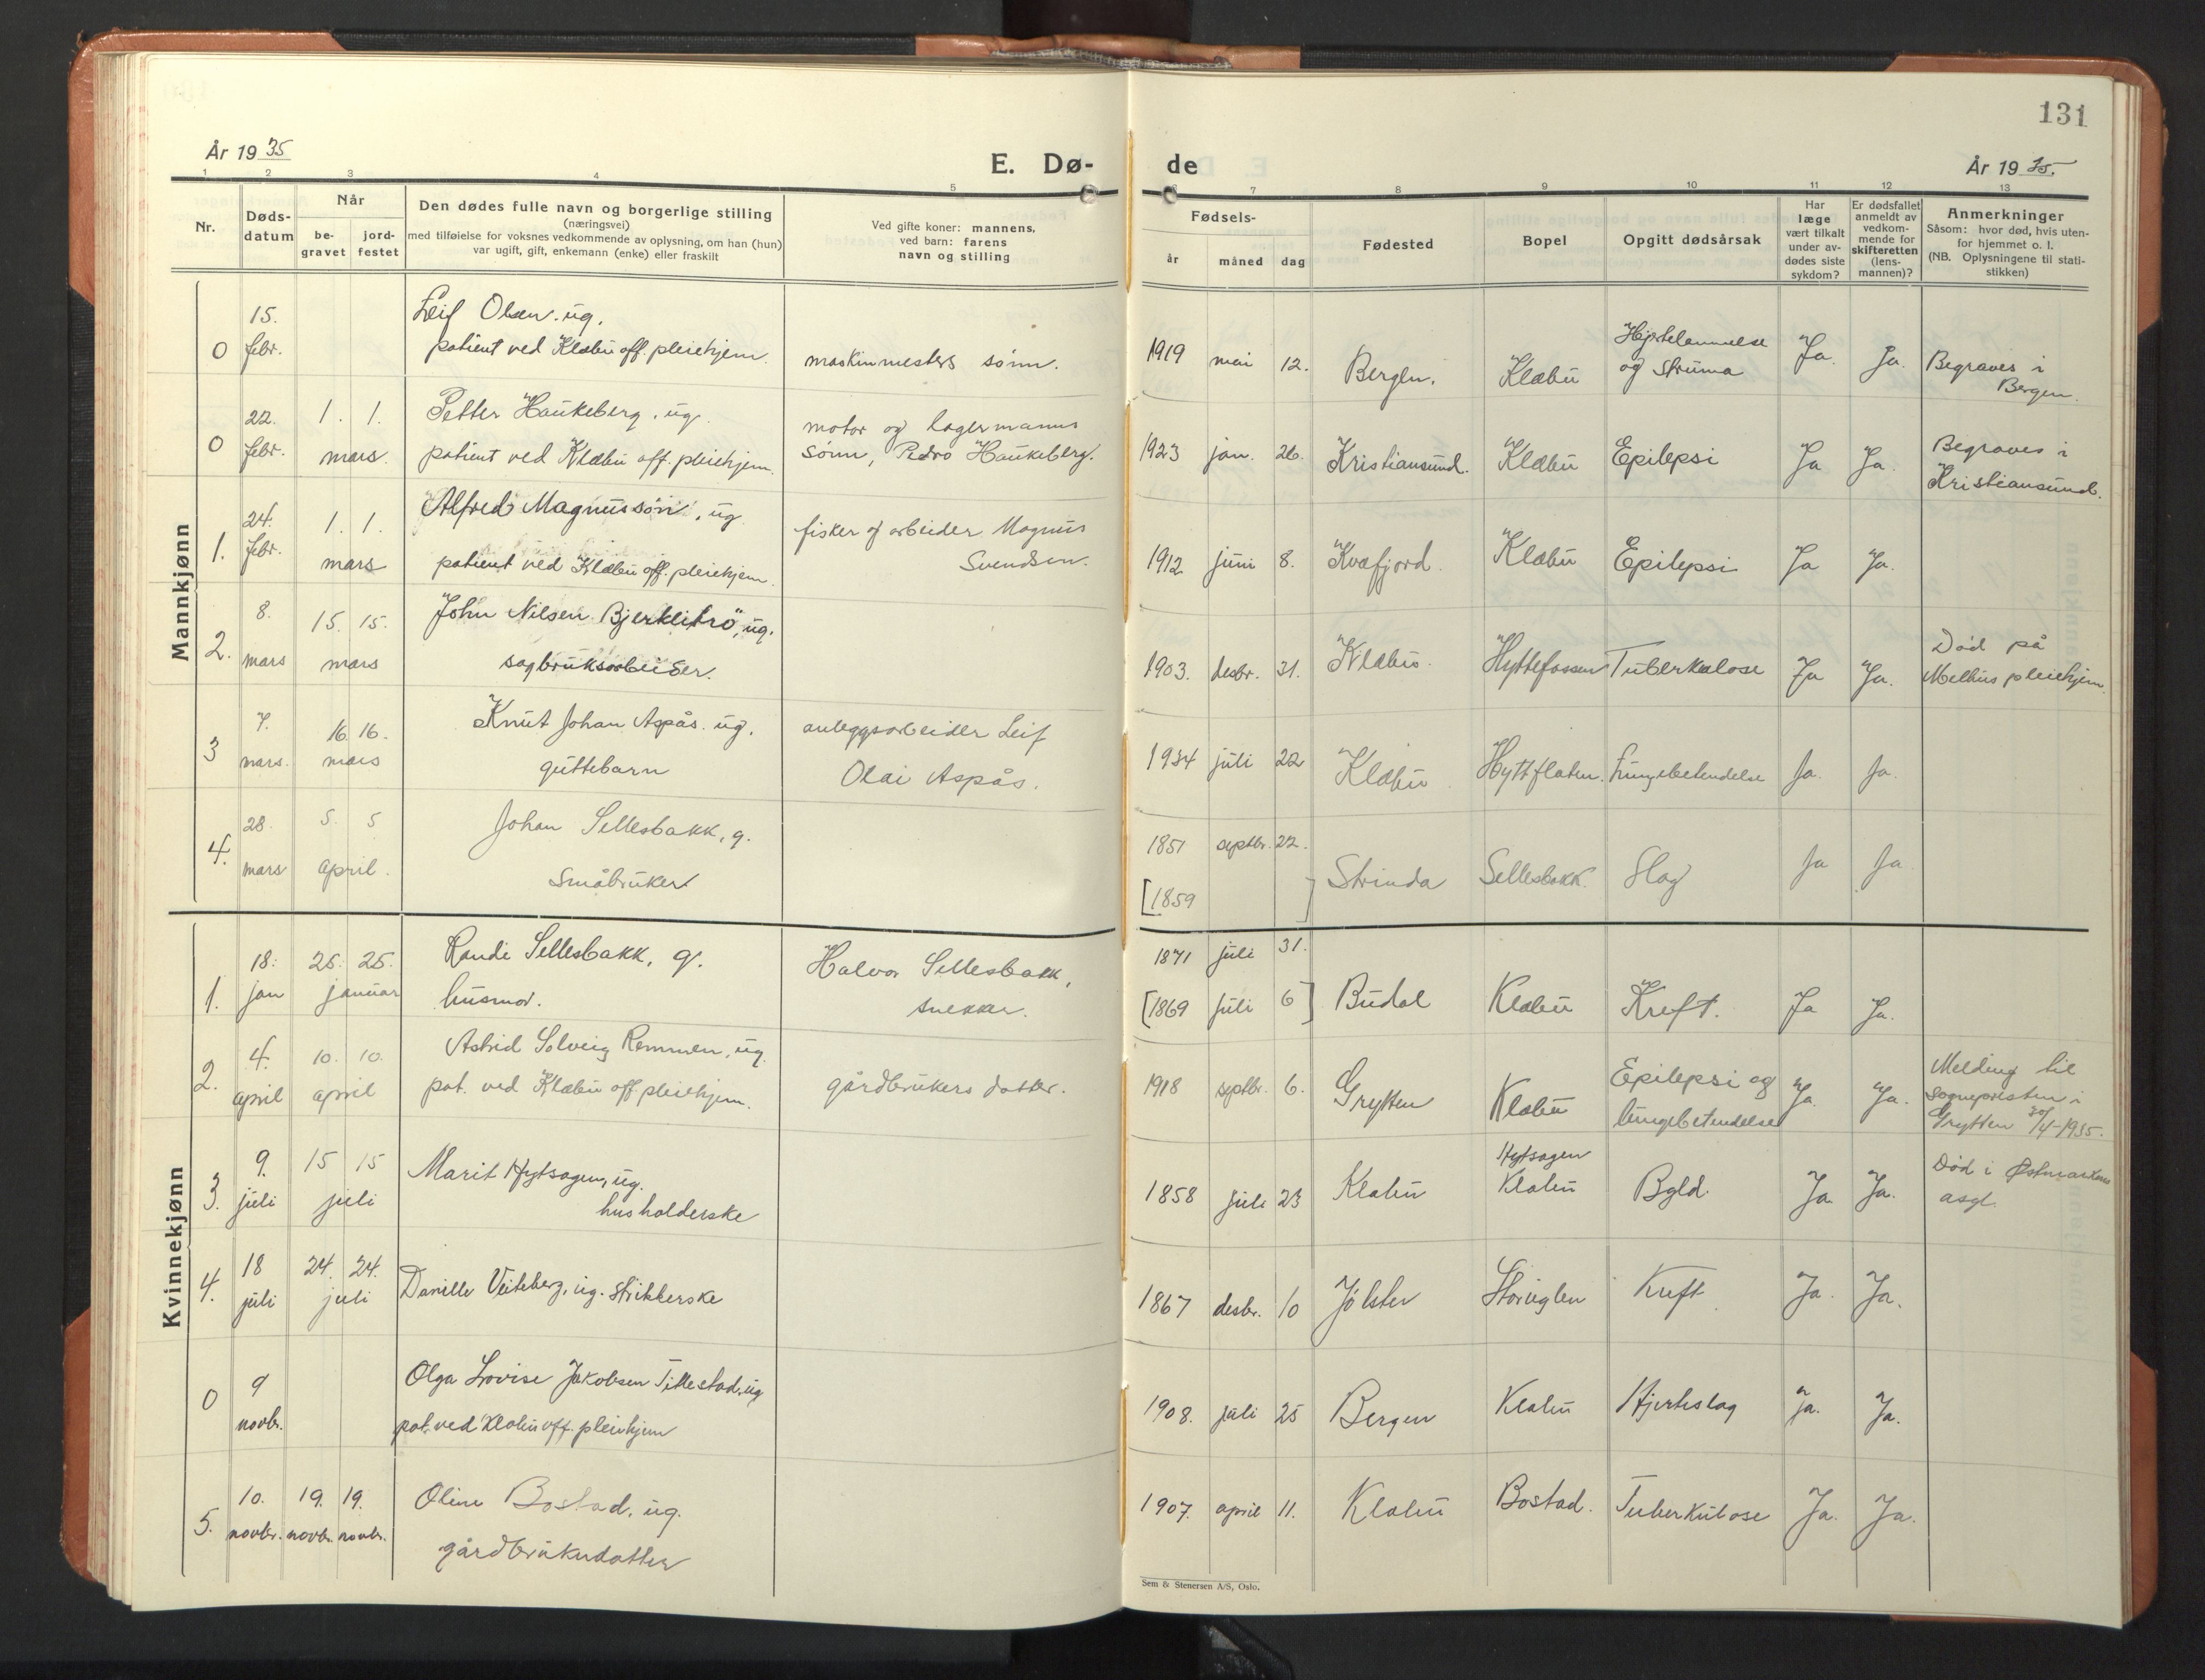 131
År 1935
E. Dø-
de
År 1935.
1 2 3 4 5 6 7 8 9 10 11 12 13
Nr.
Døds-
datum
Når
be-
gravet
jord-
festet
Den dødes fulle navn og borgerlige stilling
(næringsvei)
med tilføielse for voksnes vedkommende av oplysning, om han (hun)
var ugift, gift, enkemann (enke) eller fraskilt
Ved gifte koner: mannens,
ved barn: farens
navn og stilling
Fødsels-
år måned dag
Fødested
Bopel
Opgitt dødsårsak
Har
læge
vært tilkalt
under av-
dødes siste
sykdom?
Er dødsfallet
anmeldt av
vedkom-
mende for
skifteretten
(lens-
mannen)?
Anmerkninger
Såsom: hvor død, hvis uten-
for hjemmet o. l.
(NB. Oplysningene til stati-
stikken)
Mannkjønn
0 15. febr.
Leif Olsen. ug.
patient ved Klæbu off. pleiehjem.
maskinmesters sønn.
1919 mai 12. Bergen. Klæbu
Hjertelammelse
og struma
Ja. Ja.
Begraves i
Bergen.
0 22. febr. 1. 1. mars.
Petter Haukeberg, ug.
patient ved Klæbu off. pleiehjem.
motor og lagermanns
sønn, Pedro Haukeberg.
1923 jan. 26. Kristiansund. Klæbu Epilepsi Ja Ja.
Begraves i
Kristiansund.
1. 24. febr. 1. 1. mars
Alfred Magnussøn, ug
patient ved Klæbu off. pleiehjem.
fisker og arbeider Magnus
Svendsen.
1912 juni 8. Kvæfjord. Klæbu Epilepsi Ja Ja.
2. 8. mars 15. 15. mars
John Nilsen Bjerklitrø, ug.
sagbruksarbeider.
1903. desbr. 31. Klæbu. Hyttefossen Tuberkulose Ja Ja.
Død på
Melhus pleiehjem.
3 7. mars. 16. 16. mars
Knut Johan Aspås. ug.
guttebarn
anleggsarbeider Leif
Olai Aspås.
1934 juli 22 Klæbu Hyttflaten. Lungebetendelse Ja. Ja.
4. 28. mars 5. 5 april.
Johan Sellesbakk, g.
Småbruker
1851 septbr. 22.
[1859 ]
Strinda Sellesbakk. Slag Ja Ja
Kvinnekjønn
1. 18. jan 25. 25. januar
Randi Sellesbakk, g.
husmor.
Halvor Sellesbakk,
snekker.
1871 juli 31.
[1869 juli 6]
Budal Klæbu Kreft. Ja Ja.
2. 4. april 10. 10. april
Astrid Solveig Remmen, ug.
pat. ved Klæbu off pleiehjem.
gårdbrukers datter.
1918 septbr. 6. Grytten Klæbu
Epilepsi og
lungebetendelse
Ja. Ja.
Melding til
sognepresten i
Grytten 30/4-1935.
3. 9. juli 15 15 juli
Marit Hytsagen, ug.
husholderske
1858 juli 23 Klæbu
Hytsagen
Klæbu
Bgld. Ja. Ja.
Død i Østmarken
asyl.
4. 18 juli 24. 24. juli
Danille Veiteberg, ug. strikkerske
1867 desbr. 10 Jølster Storuglen Kreft Ja. Ja.
0 9 novbr.
Olga Lovise Jakobsen Tillestad, ug
pat. ved Klæbu off. pleiehjem
1908. juli 25 Bergen Klæbu Hjerteslag Ja. Ja.
5. 10. novbr. 19. novbr. 19. novbr.
Oline Bostad, ug.
gårdbrukerdatter
1907. april 11. Klæbu Bostad. Tuberkulose Ja. Ja.
Sem & Stenersen A/S, Oslo.